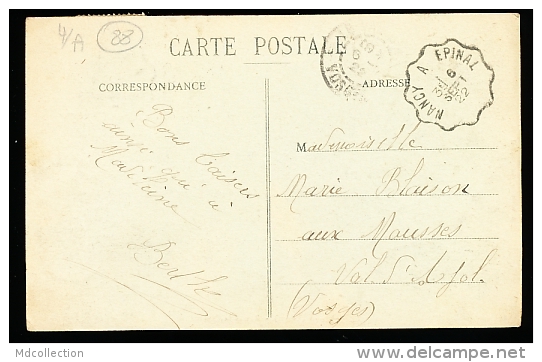 4/A
28
CARTE POSTALE
CORRESPONDANCE
ADRESSE
NANCY A EPINAL
Bons baisers
ainsi qu'à
Madeleine
Berthe
Mademoiselle
Marie Blaison
aux Mousses
Val d'Ajol.
(Vosges)
Mdcollection
delcampe.net